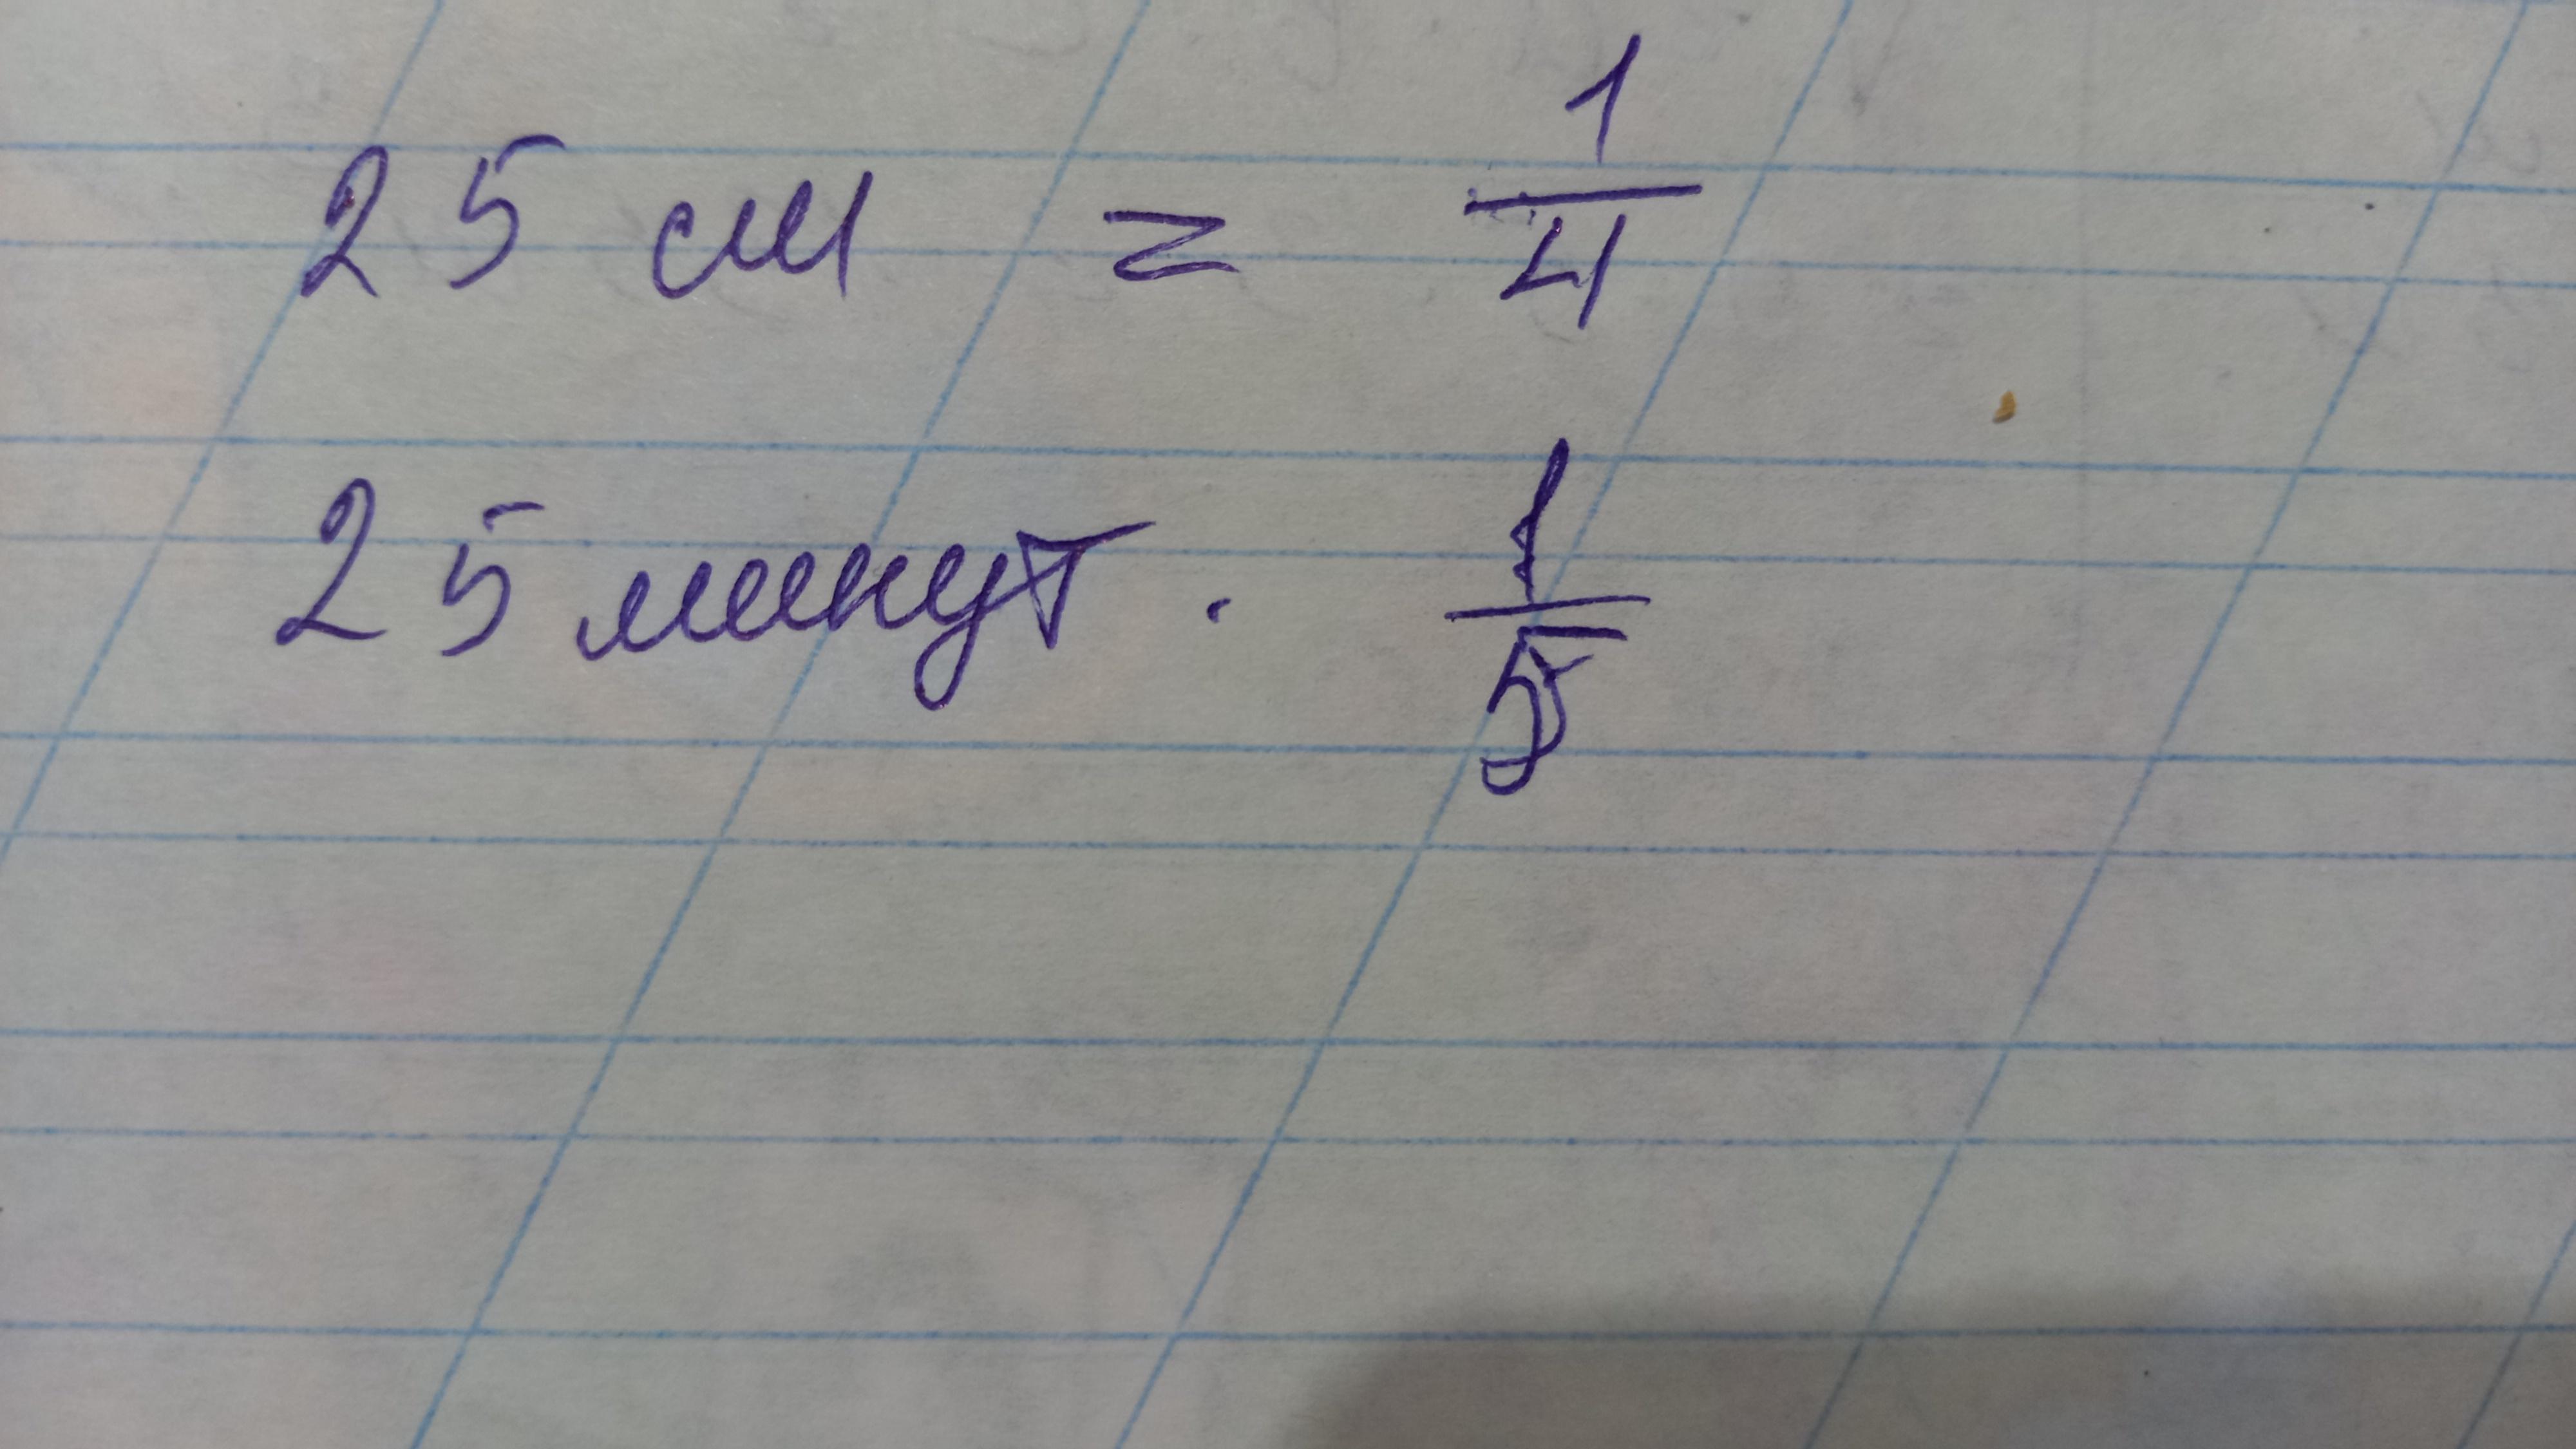 25 см = 1/4
25 минут. 1/5